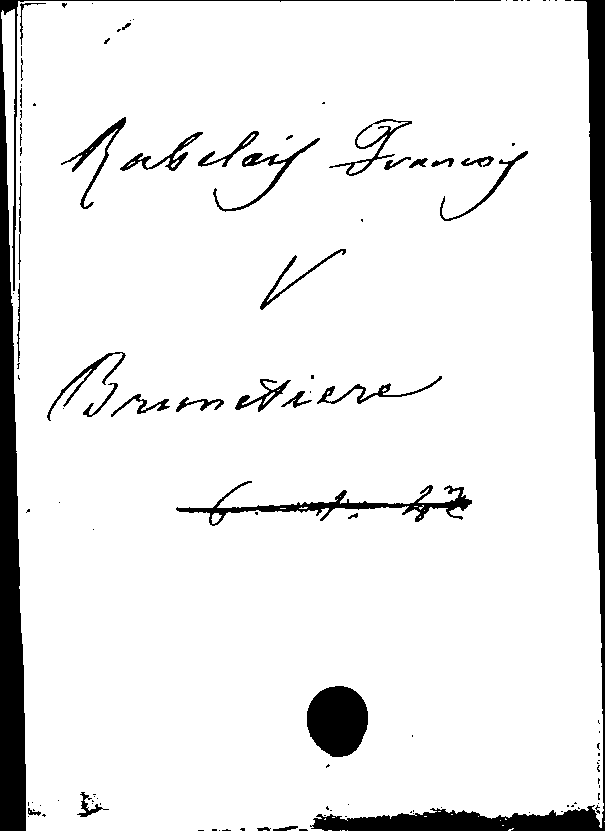 Rabelais Francois
V
Brunetiere